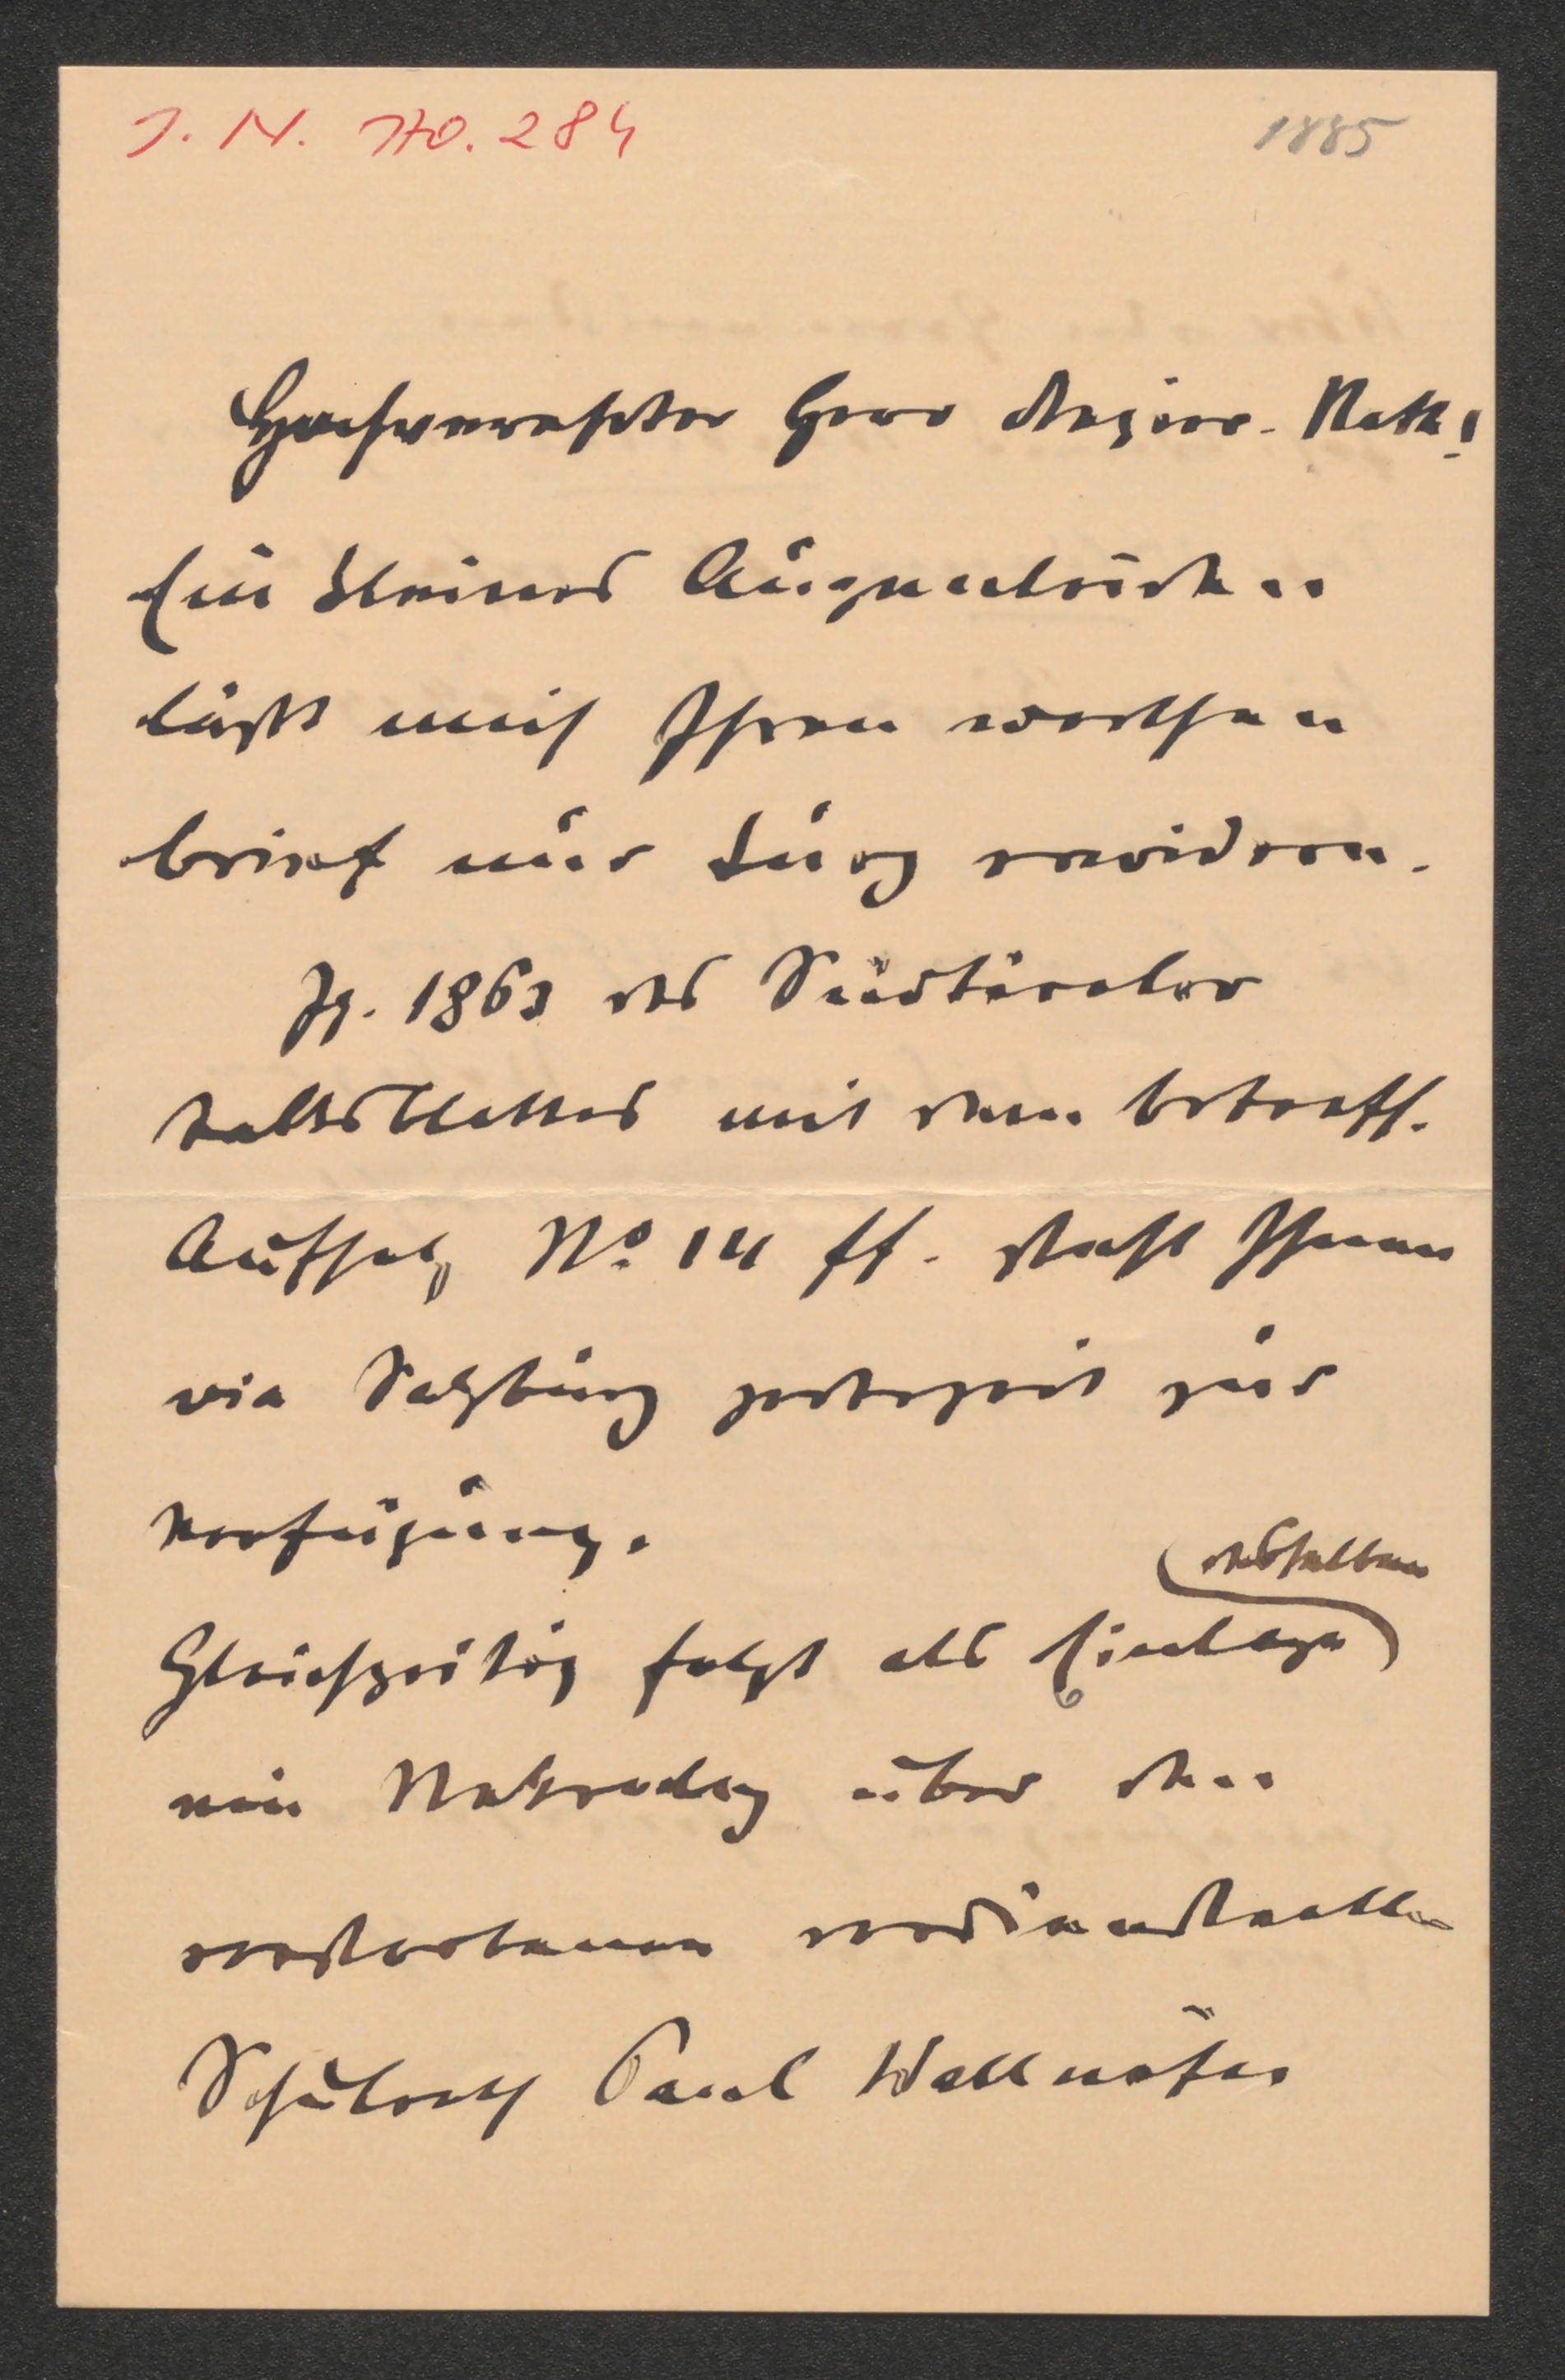 J. N. 770. 284
1885
Hochverehrter Herr Regier. Rath!
Ein kleines Augenleiden
läßt mich Ihren werthen
brief nur kurz erwidern.
Jg. 1863 des Südtiroler
Volksblattes mit dem betreff.
Aufsatz No. 14 ff. steht Ihnen
via Salzburg jederzeit zur
Verfügung.
desselben
Gleichzeitig folgt als Einlage
ein Nekrolog über den
verstorbenen verdienstvollen
Schulrath Paul Wallnöfer